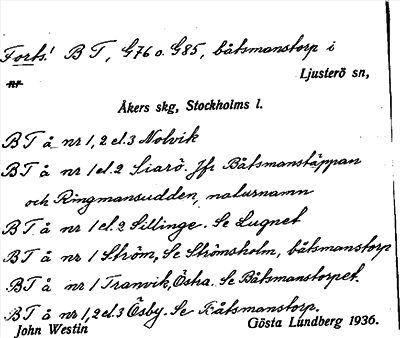 Forts! B T, G76 o. G85, båtsmanstorp i
nr
Ljusterö sn,
Åkers skg, Stockholms l.
B T å nr 1, 2 el. 3 Nolvik
B T å nr 1 el. 2 Siarö. Jfr Båtsmanstäppan
och Ringmansudden, naturnamn
B T å nr 1 el. 2 Sillinge. Se Lugnet
B T å nr 1 Ström, Se Strömsholm, båtsmanstorp
B T å nr 1 Tranvik, Östra. Se Båtsmanstorpet.
B T å nr 1, 2 el. 3 Ösby. Se Båtsmanstorp.
John Westin Gösta Lundberg 1936.